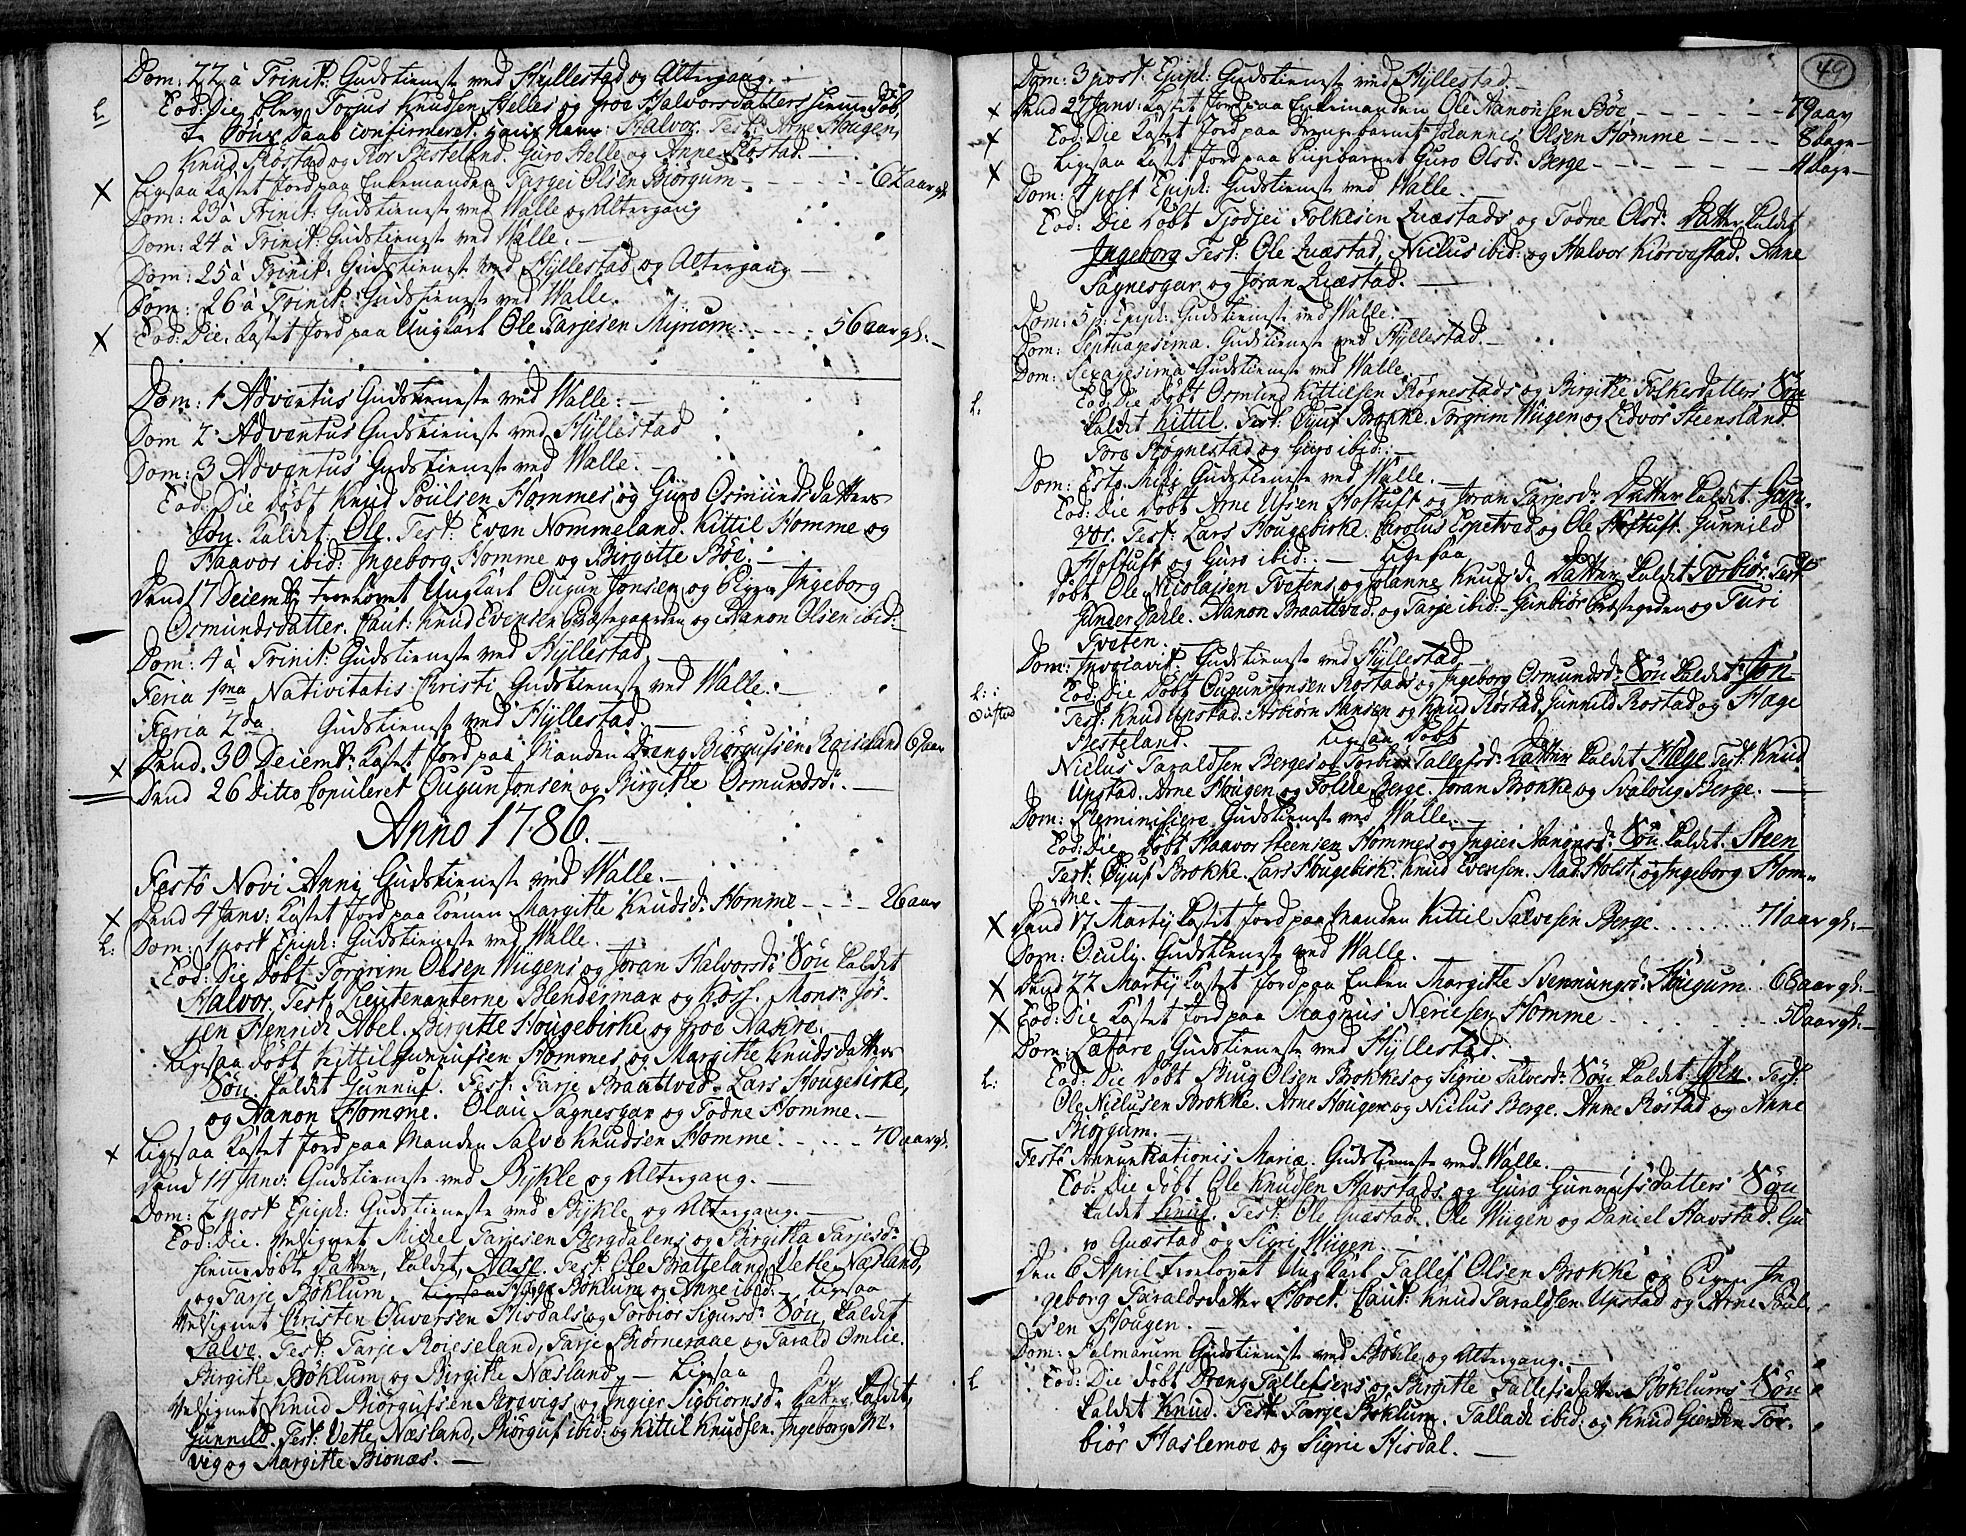 Dom: 22 à Trinit: Gudstieneste ved Hyllestad og Altergang. —
Eod: Die blev Torjus Knudsen Helles og Groe Halvorsdatters hiemmedøb,
te Søns Daab confirmeret. hans Navn: Halvor. Test: Arne Hougen,
Knud Rostad og Hesteland. Guro Helle og Anne Rostad. —
Ligesaa Kastet Jord paa Enkemanden Targei Olsen Biørgum — 62 aar gl:
Dom: 23 à Trinit: Gudstieneste ved Walle og Altergang
Dom: 24 à Trinit: Gudstieneste ved Walle. —
Dom: 25 à Trinit: Gudstieneste ved Hyllestad og Altergang —
Dom: 26 à Trinit: Gudstieneste ved Walle.
Eod: Die. Kastet Jord paa Ungkarl Ole Tarjesen Myrum — 56 aar gl: —
Dom: 1 Adventus Gudstieneste ved Walle. —
Dom 2 Adventus Gudstieneste ved Hyllestad
Dom: 3 Adventus Gudstieneste ved Walle. —
Eod: Die døbt Knud Poulsen Hommes og Guro Osmundsdatters
Søn. Kaldet Ole. Test: Even Nommeland. Kittil Homme og
Haavor ibid: Ingeborg Homme og Birgitte Bøe. —
Dend 17 Deiembr trolovet Ungkarl Ougun Jonsen og Pigen Ingeborg
Osmundsdatter. Caut: Knud Evensen Præstegaarden og Aanon Olsen ibid: —
Dom: 4 à Trinit: Gudstieneste ved Hyllestad
Feria 1ma Nativitatis Christi Gudstieneste ved Walle. —
Feria 2da Gudstieneste ved Hyllestad. —
Dend. 30 Deiembr: Kastet Jord paa Manden Drong Biørgufsen Roiseland 67 aar
Dend 26 Ditto Copuleret Ougun Jonsen og Birgitte Osmundsdr. —
Anno 1786.
Festo Novi Anni Gudstieneste ved Walle. —
Dend 4 Janv: Kastet Jord paa Konen Margitte Knudsdr Homme — 26 aar
L: Dom: 1 post Epiph: Gudstieneste ved Walle. —
Eod: Die døbt Torgrim Olsen Wiigens og Joran Halvorsdr Søn Kaldet
Halvor. Test: Lieutenanterne Blenderman og Kofs. Monsr Jør-
gen Henrich Abel. Birgitte Hougebirke og Groe Aakre.
Ligesaa døbt Kittil Gunnufsen Hommes og Margitte Knudsdatters
Søn. Kaldet Gunnuf. Test: Tarje Braattved. Lars Hougebirke,
og Aanon Homme. Olau Sagnesgar og Todne Homme. —
Ligesaa Kastet Jord paa Manden Salve Knudsen Homme. — 70 aar gl:
Dend 14 Janv: Gudstieneste ved Bykle og Altergang. —
Dom: 2 post Epiph: Gudstieneste ved Bykle og Altergang. —
Eod: Die. Velsignet Michel Tarjesen Bergdalens og Birgitha Tarjesdr
hiemmedøbt Datter, Kaldet, Aase. Test: Ole Bratteland, Vetle Næsland,
og Tarje Böklum. Hæge Böklum og Anne ibid: — Ligesaa
Velsignet Christen Ouversen Hisdals og Torbior Sigursdr Søn, Kaldet
Salve. Test: Tarje Roiseland, Tarje Biørnevaae og Tarald Omlie.
Birgitte Böklum og Birgitte Næsland. — Ligesaa
Velsignet Knud Biørgufsen Brevigs og Ingier Sigbiornsdr Datter Kaldet,
Gunnild. Test: Vetle Næsland, Biørguf ibid: og Kittil Knudsen. Ingeborg Bre-
vig og Margitte Bionæs. —
49
Dom: 3 post. Epiph: Gudstieneste ved Hyllestad. —
Dend 27 Janv: Kastet Jord paa Enkemanden Ole Aanonsen Bøe, — 79 aar
Eod: Die Kastet Jord paa Drengebarnet Johannes Olsen Homme — 8 dage —
Ligesaa Kastet Jord paa Pigebarnet Guro Olsdr Berge — 4 dage —
Dom: 4 post Epiph: Gudstieneste ved Walle. —
Eod: Die døbt Tjodjei Folkesen Quæstads og Todne Olsdr Datter Kaldet
Ingeborg Test: Ole Quæstad, Niclus ibid: og Halvor Kiørvestad. Anne
Sagnesgar og Joran Quæstad. —
Dom: 5 p: Epiph: Gudstieneste ved Walle.
Dom: Septuagesima. Gudstieneste ved Hyllestad. —
Dom: Sexagesima Gudstieneste ved Walle.
L: Eod: Die døbt Osmund Kittilsen Rögnestads og Birgitte Folkesdatters Søn
Kaldet Kittil. Test: Øyuf Brokke. Torgrim Wiigen og Eidvor Steensland.
Tore Rögnestad og Guro ibid: —
Dom: Esto Mihi Gudstieneste ved Walle. —
Eod: Die døbt Arne Ulsen Hoftuft og Joran Tarjesdr Datter Kaldet Gun-
vor. Test: Lars Hougebirke. Carolus Espetved og Ole Hoftuft. Gunnild
Hoftuft og Guro ibid: — Ligesaa
døbt Ole Nicolaisen Tvetens og Johanne Knudsdr Datter Kaldet Torbiør. Test:
Gunder Dahle. Aanon Braattved. og Tarje ibid: — Gunbiør Præstegrden og Turi
Tveten.
Dom: Invocavit: Gudstieneste ved Hyllestad —
L: Eod: Die døbt Ougun Jonsen Rostads og Ingeborg Osmundsdr Søn Kaldet Jon
Test: Knud Upstad. Asbiørn Hansen og Knud Rostad, Gunnild Rostad og Hage
Hesteland. Ligesaa døbt
Niclus Taraldsen Berges og Torbiør Tallefsdr Datter Kaldet Hæge Test: Knud
Upstad. Arne Hougen og Folke Berge. Joran Brokke og Svaloug Berge. —
Dom: Reminisiere Gudstieneste ved Walle. —
Eod: Die døbt Haavor Steensen Hommes og Ingiei Aanonsdr Søn Kaldet. Steen
Test: Øyuf Brokke. Lars Hougebirk. Knud Evensen. Mad: Holst og Ingeborg Hom-
me.
Dend 17 Martij Kastet Jord paa Manden Kittil Salvesen Berge. — 71 aar gl: —
Dom: Oculi. Gudstieneste ved Walle.
Dend 22 Martij Kastet Jord paa Enken Margitte Svenningsdr Hougum. 68 aar gl: —
Eod: Die Kastet Jord paa Magnus Neriesen Homme — 50 aar gl: —
Dom: Lætare Gudstieneste ved Hyllestad.
L: Eod: Die døbt Brug Olsen Brokkes og Sigrie Salvesdr Søn Kaldet: Jøen. Test:
Ole Niclusen Brokke. Arne Hougen og Niclus Berge. Anne Rostad og Anne
Biørgum. —
Festo Annuntiationis Mariæ. Gudstieneste ved Walle. —
Eod: Die døbt Ole Knudsen Havstads og Guro Gunnufsdatters Søn
Kaldet Knud. Test: Ole Quæstad. Ole Wiigen og Daniel Havstad. Gu
ro Quæstad og Sigri Wiigen. —
Den 6 April Trolovet Ungkarl Tallef Olsen Brokke og Pigen In-
geborg Taraldsdatter Hovet. Caut: Knud Taraldsen Upstad og Arne Poul-
sen Hougen. —
Dom: Palmarum Gudstieneste ved Bökle og Altergang. —
L Eod: Die døbt Dreng Tallefsens og Birgitte Tallefsdatters Böklums Søn
Kaldet Knud. Test: Targe Böklum. Tallack ibid: og Knud Gierden Tor-
biør Haslemoe og Sigrie Hisdal. —